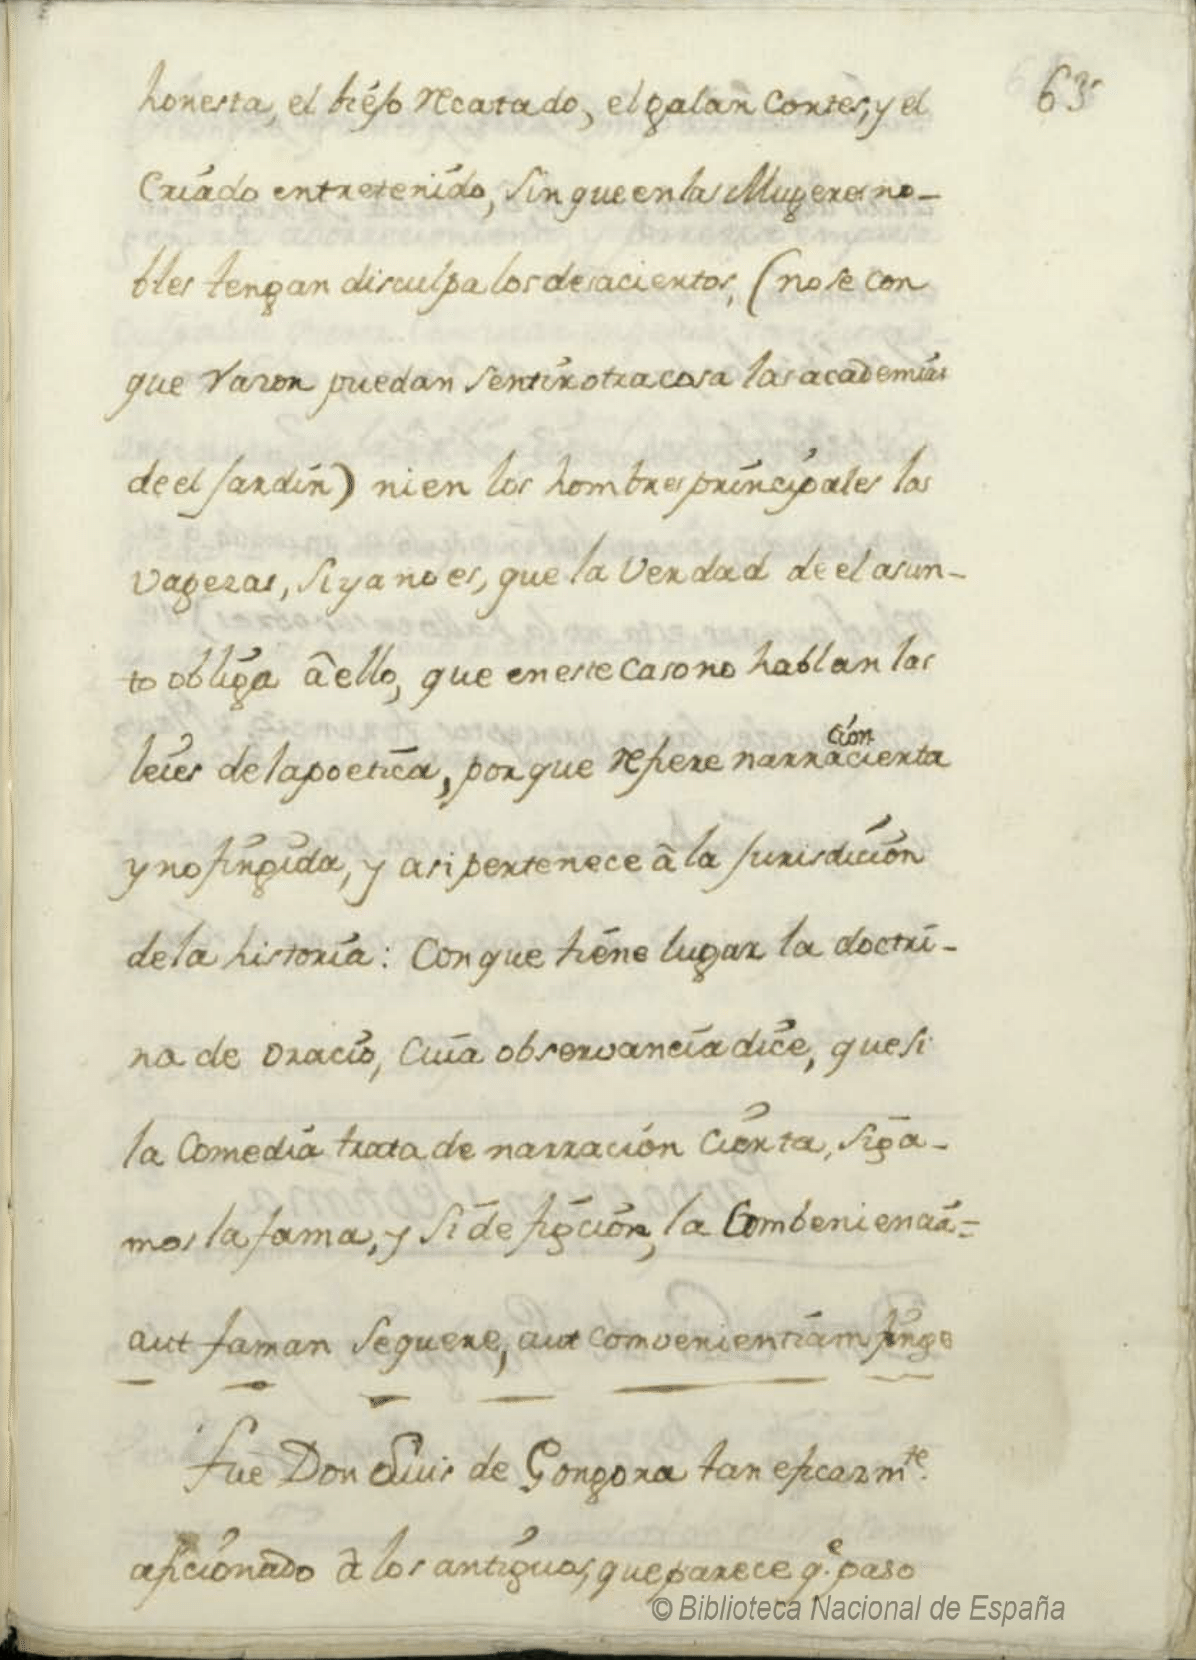 63
honesta, el biejo recatado, el galan Cortes, y el
Criado entretenido, Sin que en las Mugeres no-
bles tengan disculpa los desaciertos, (no se con
que razon puedan Sentir otra cosa las academias
de el Jardin) ni en los hombres principales las
vagezas, Si ya no es, que la Verdad de el asun-
to obliga à ello, que en este caso no hablan las
leies de la poetica, porque refiere narracion cierta
y no fingida, y asi pertenece à la Jurisdicion
de la historia: Con que tiene lugar la doctri-
na de Oracio, Cuia observancia dice, que si
la Comedia trata de narracion Cierta, Siga-
mos la fama, y Si de figcion, la Combeniencia=
aut faman Sequere, aut convenientiam finge
fue Don Luis de Gongora tan eficazmte.
aficionado à los antiguos, que parece qe. paso
© Biblioteca Nacional de España